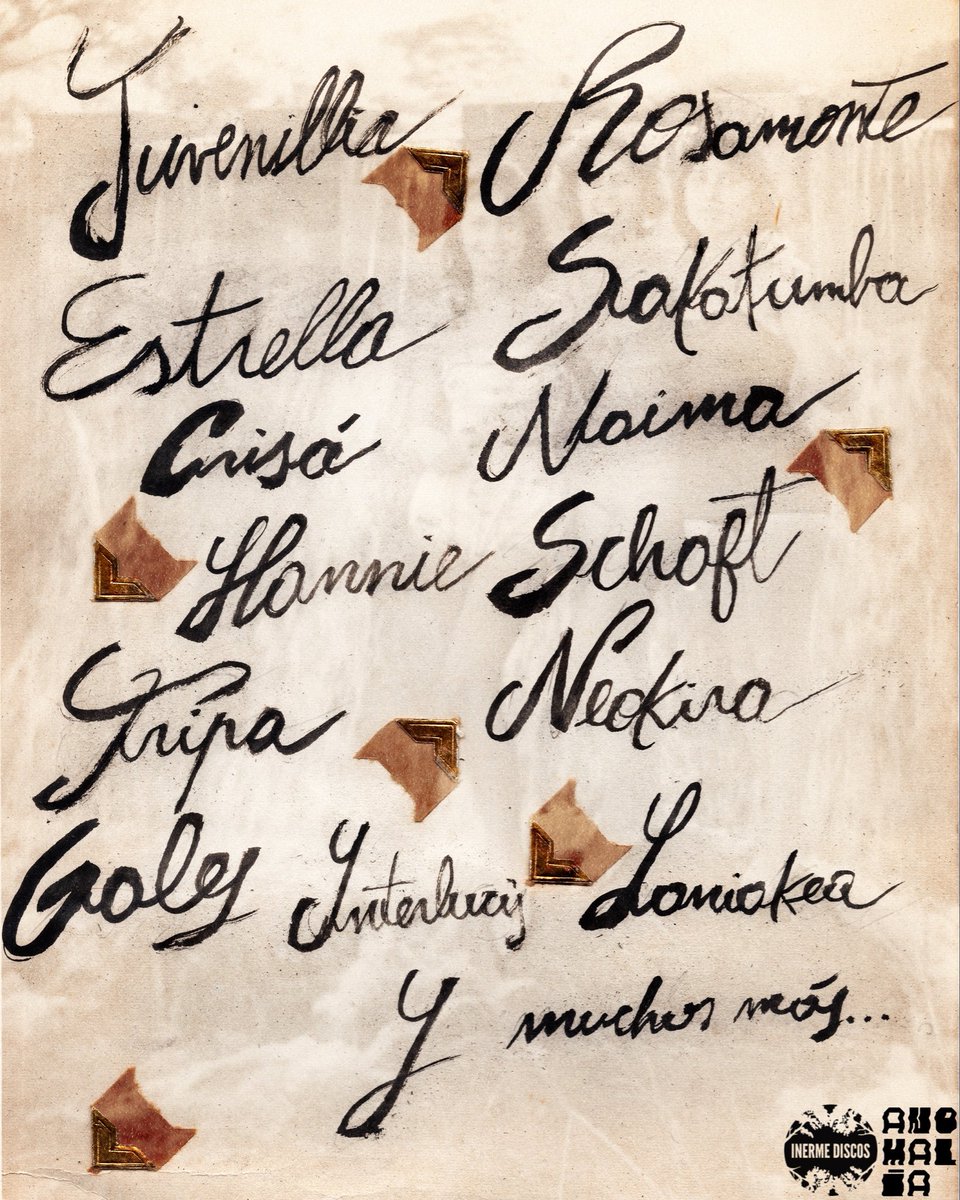 Juvenillia Rosamonte
Estrella Srakatumba
Crisá Naima
Hannie Schaft
Tripa Neokira
Galey Interlucij Laniakea
Y muchos más...
INERME DISCOS
ANO
MAL
ÍA